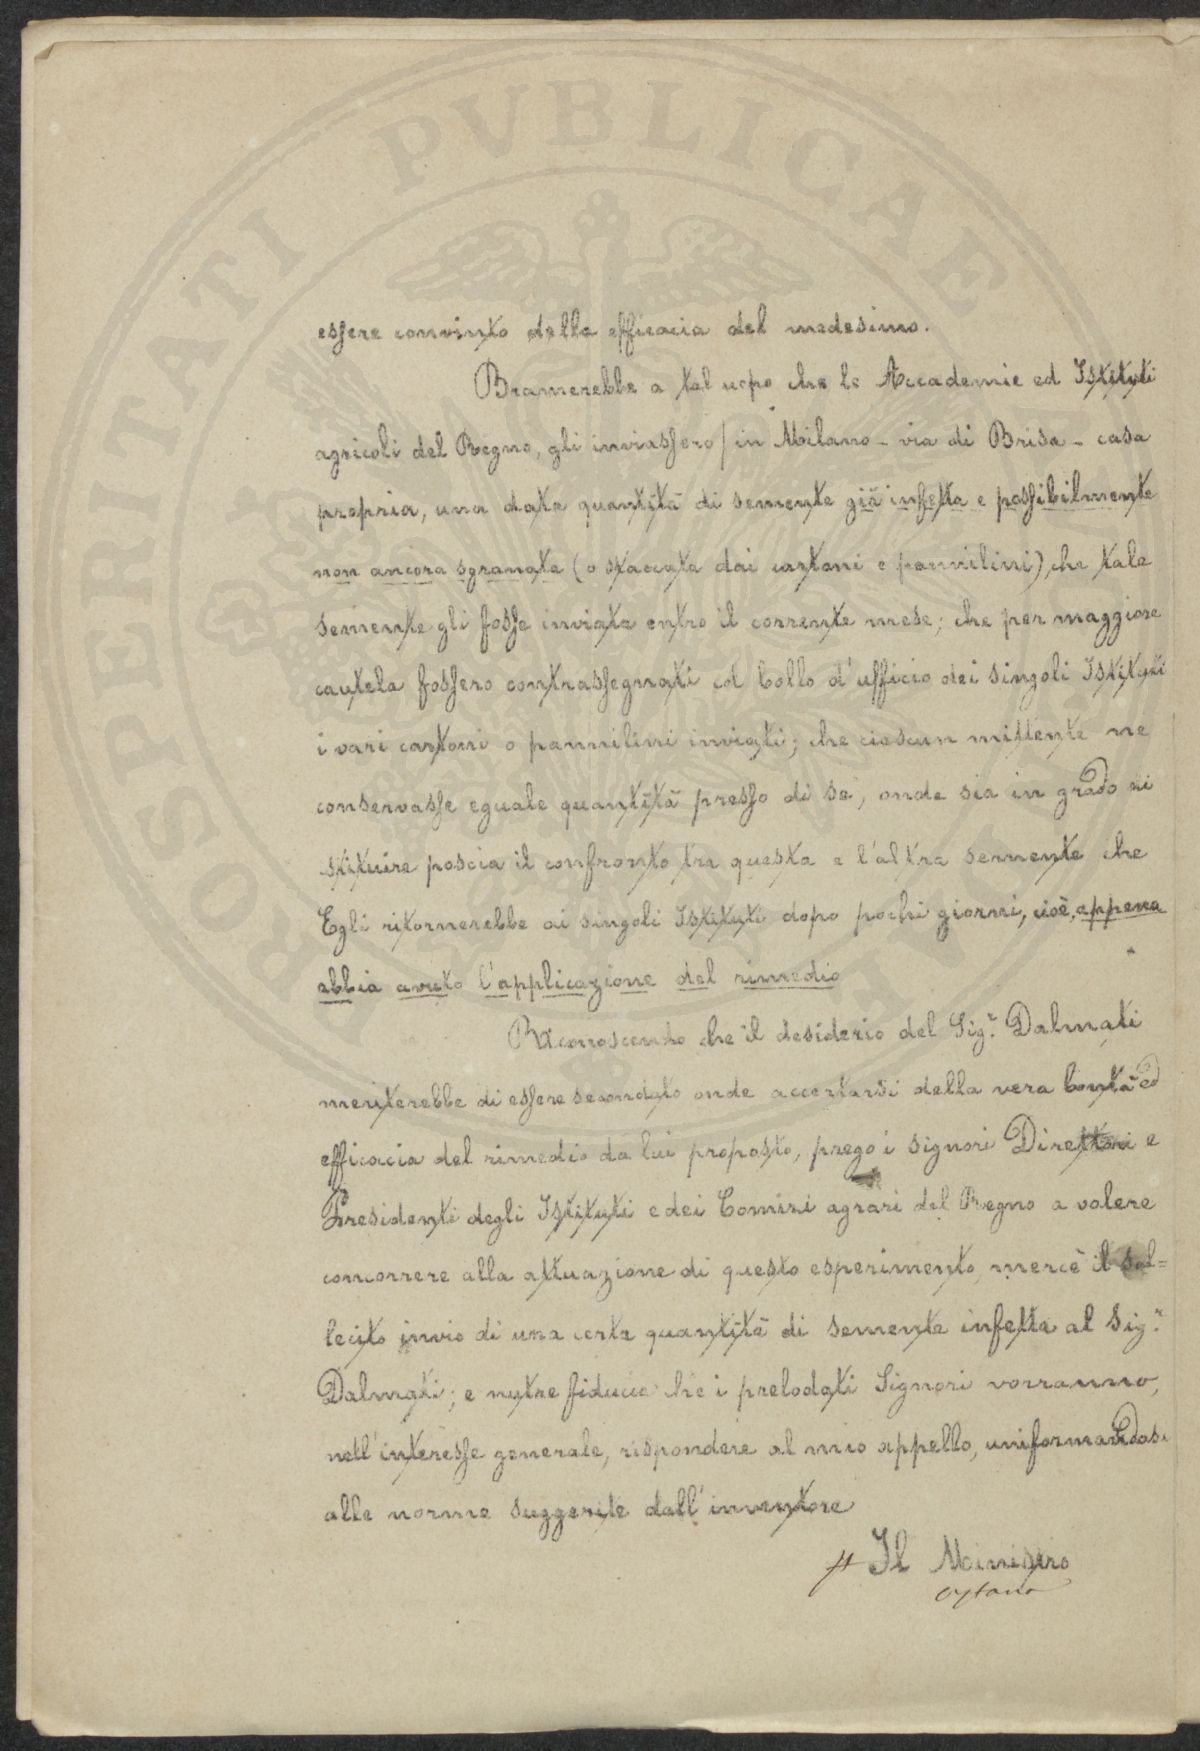 PROSPERITATI PVBLICAE
essere convinto della efficacia del medesimo.
Bramerebbe a tal uopo che le Accademie ed Istituti
agricoli del Regno, gli inviassero / in Milano - via di Brisa - casa
propria, una data quantità di semente già infetta e possibilmente
non ancora sgranata (o staccata dai cartoni e pannilini), che tale
semente gli fosse inviata entro il corrente mese; che per maggiore
cautela fossero contrassegnati col bollo d'ufficio dei singoli Istituti
i vari cartoni o pannilini inviati; che ciascun mittente ne
conservasse eguale quantità presso di sè, onde sia in grado di
stituire poscia il confronto tra questa e l'altra semente che
Egli ritornerebbe ai singoli Istituti dopo pochi giorni, cioè, appena
abbia avuto l'applicazione del rimedio
Riconoscendo che il desiderio del Sig.r Dalmati
meriterebbe di essere secondato onde accertarsi della vera bontà ed
efficacia del rimedio da lui proposto, prego i signori Direttori e
Presidenti degli Istituti e dei Comizi agrari del Regno a volere
concorrere alla attuazione di questo esperimento, mercè il sol=
lecito invio di una certa quantità di semente infetta al Sig.r
Dalmati; e nutre fiducia che i prelodati Signori vorranno,
nell'interesse generale, rispondere al mio appello, uniformandosi
alle norme suggerite dall'inventore
Il Ministro